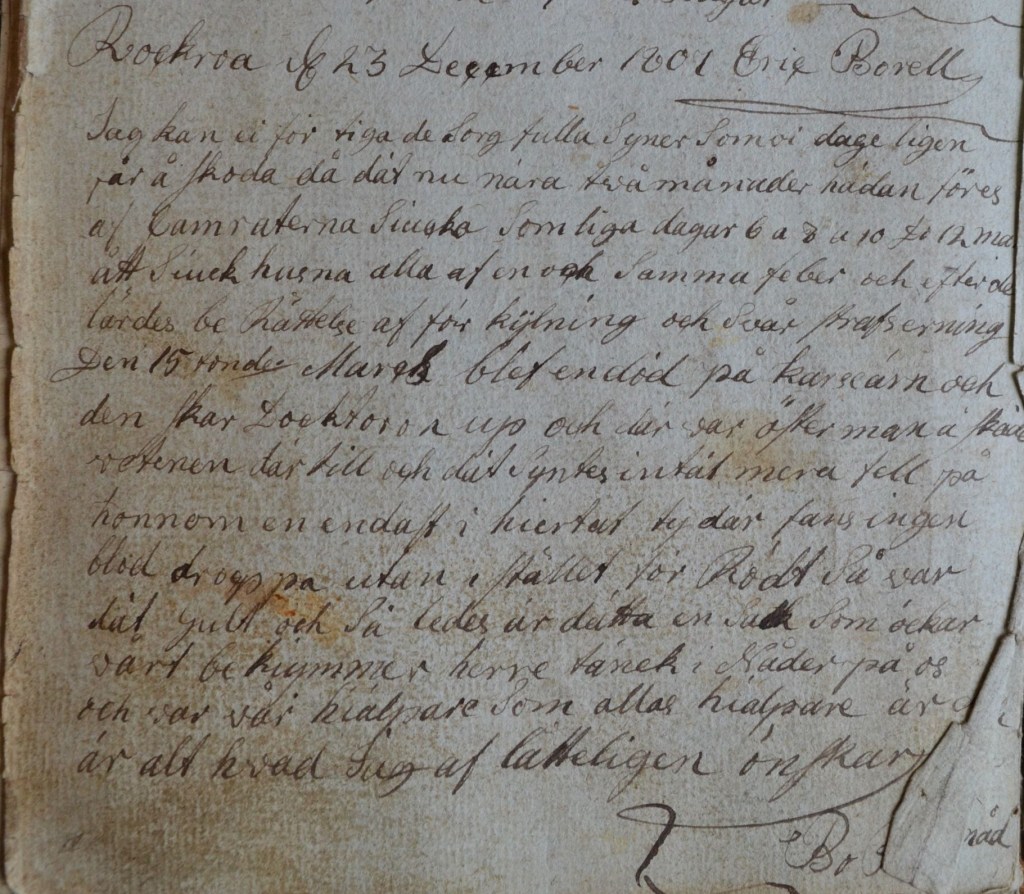 Rockroa d 23 December 1801 Eric Borell
Jag kan ei för tiga de Sorg fulla Syner Som vi dage ligen
får å skoda då dät nu nära twå månader hädan föres
af Camraterna Siucka Som liga dagar 6 a 8 a 10 til 12 ma
ått Siuck husna alla af en och Samma feber och efter de
lärdes be Rättelse af för kylning och Svår strafsering
Den 15 tonde Mars blef en död på karscärn och
den skar Docktoron up och där var öfter man å skåda
vetenen där till och dät Syntes intät mera fell på
honnom en endast i hiertat ty där fans ingen
blod droppa utan i stället för Rödt Så var
dät gult och Så ledes är dätta en Sack Som öckar
vårt be kiymmer herre tänck i Nåder på os
och var vår hiälpare Som allas hiälpare är
är alt hvad Jag af lätteligen önskar
nåd